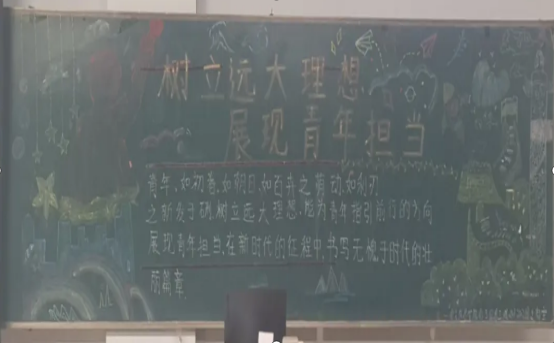 树立远大理想
展现青年担当
青年,如初春,如朝日,如百卉之萌动,如利刃
之新发于硎,树立远大理想,能为青年指引前行的方向
展现青年担当,在新时代的征程中,书写无愧于时代的壮
丽篇章